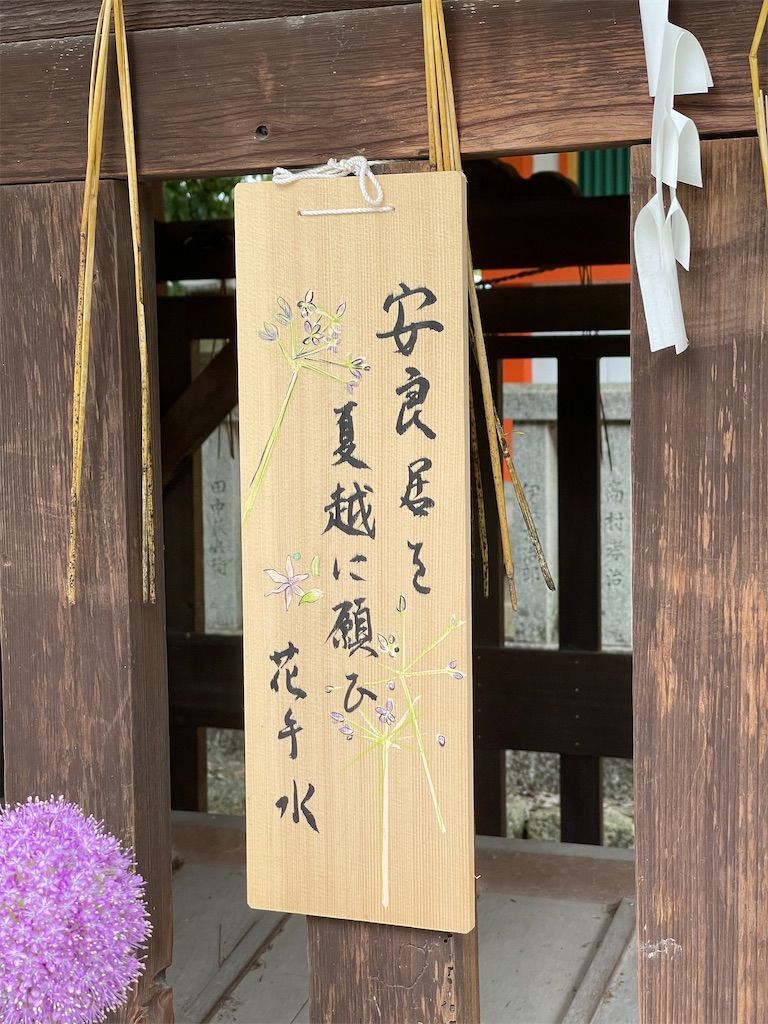 安良居を
夏越に願ひ
花手水
高村孝治